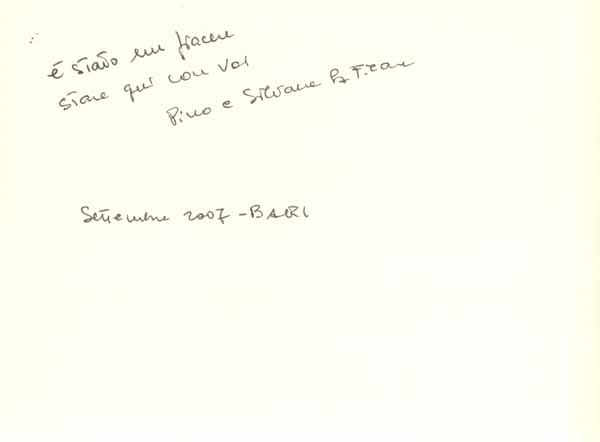 è stato un piacere
stare qui con voi
Pino e Silvana
Settembre 2007 - BARI